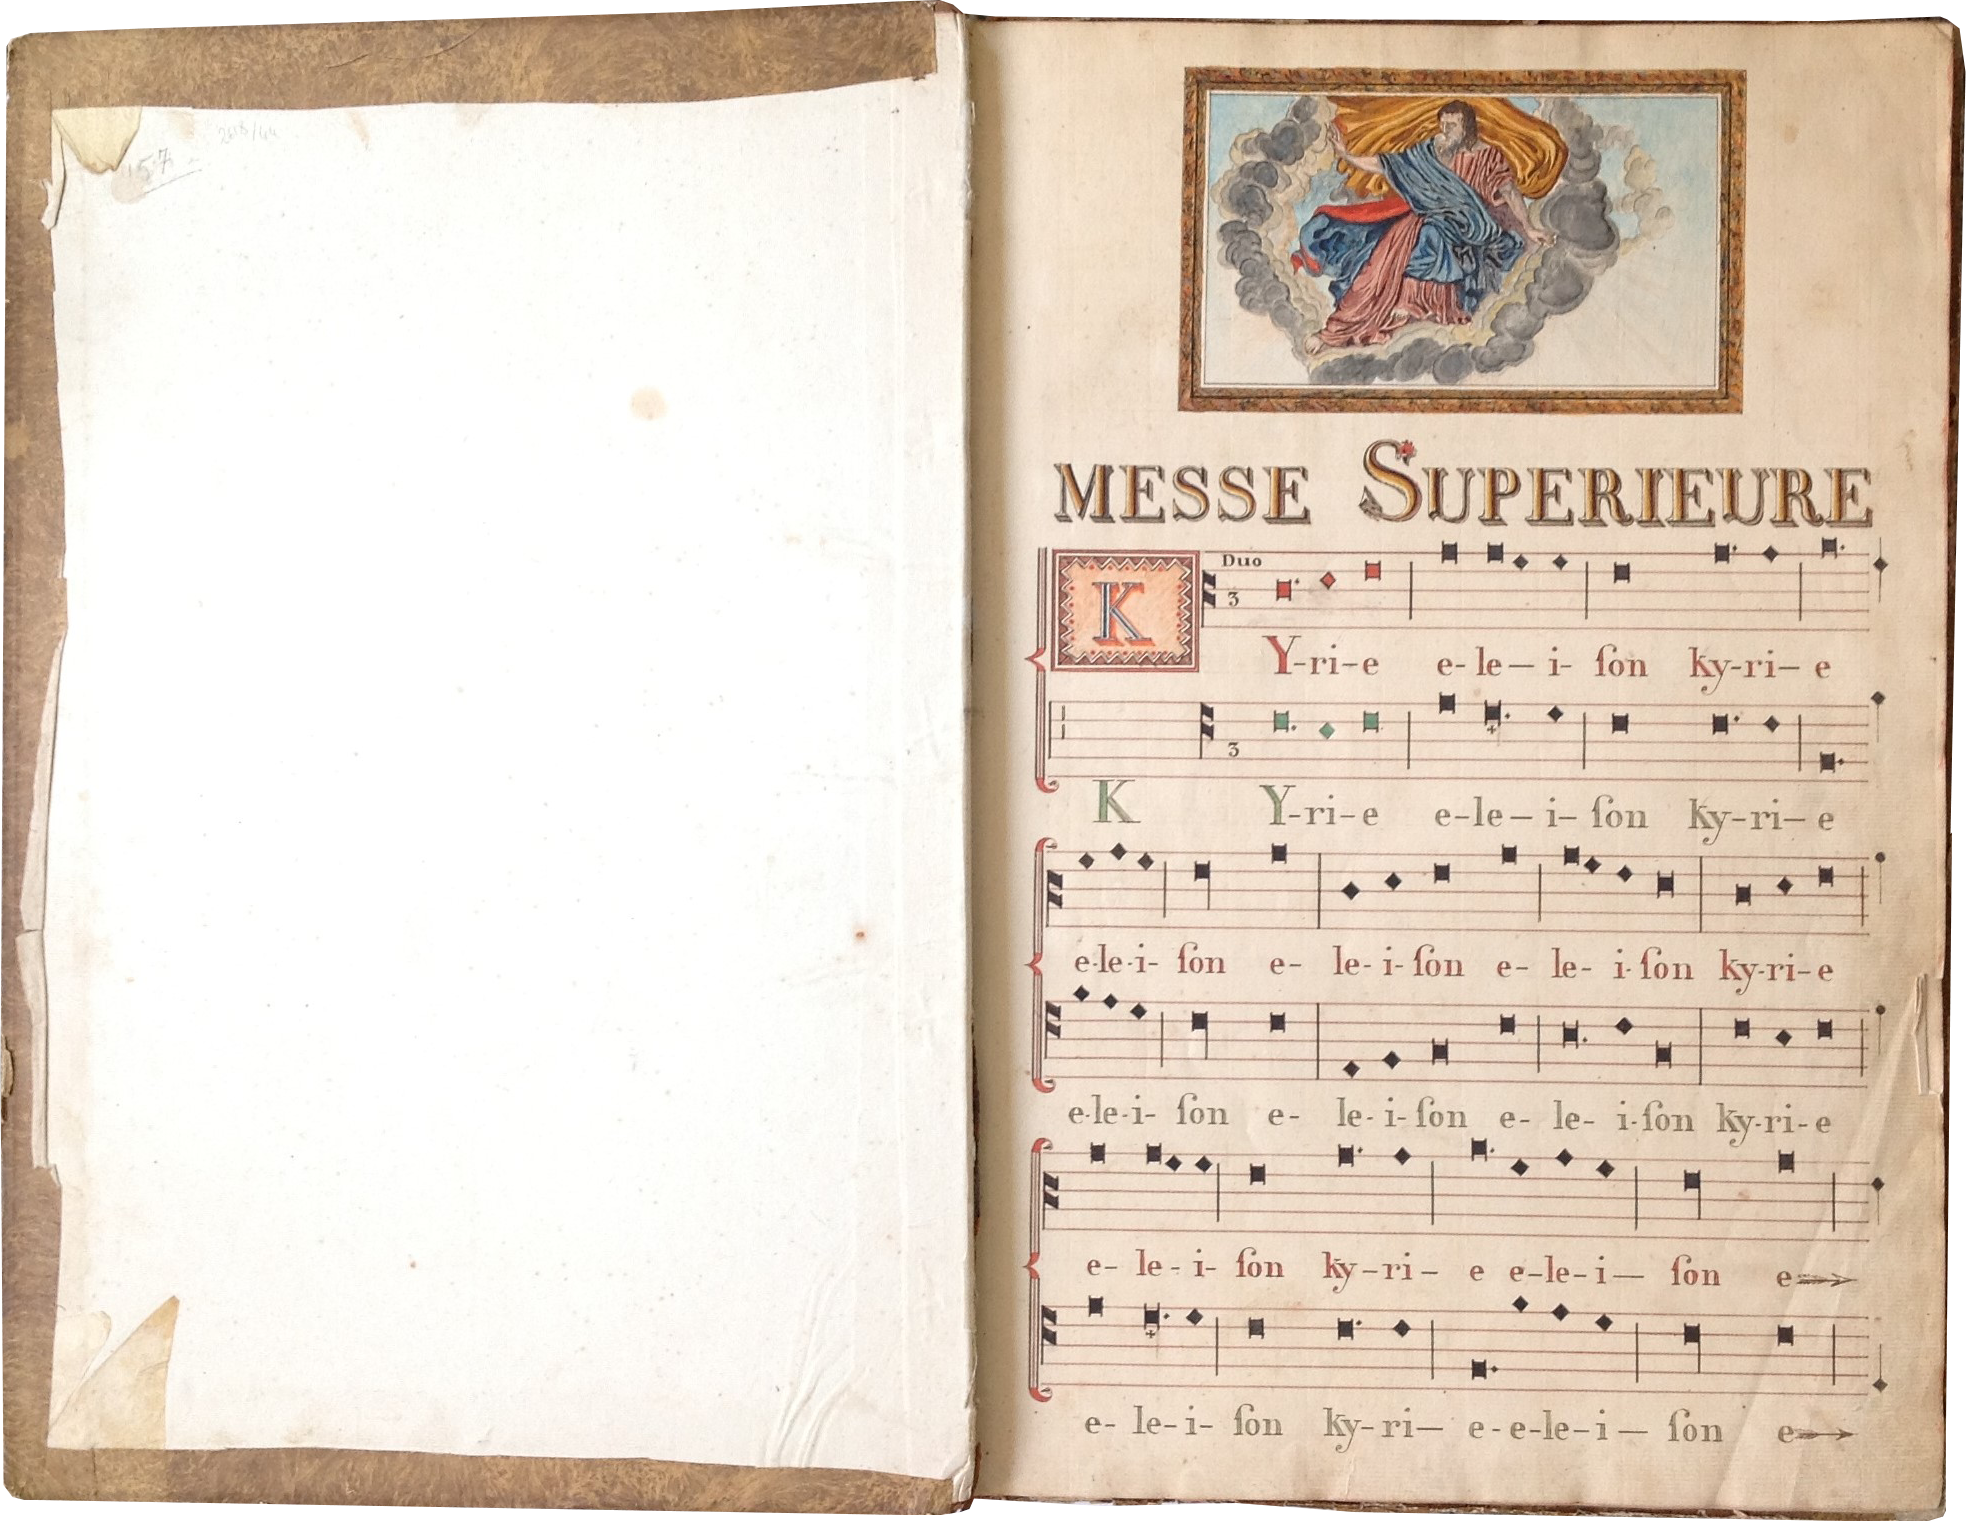 157
MESSE SUPERIEURE
Duo
3
K Y-ri-e e-le-i-ſon ky-ri-e
3
K Y-ri-e e-le-i-ſon ky-ri-e
e-le-i-ſon e-le-i-ſon e-le-i-ſon ky-ri-e
e-le-i-ſon e-le-i-ſon e-le-i-ſon ky-ri-e
e-le-i-ſon ky-ri-e e-le-i-ſon e
e-le-i-ſon ky-ri-e-e-le-i-ſon e